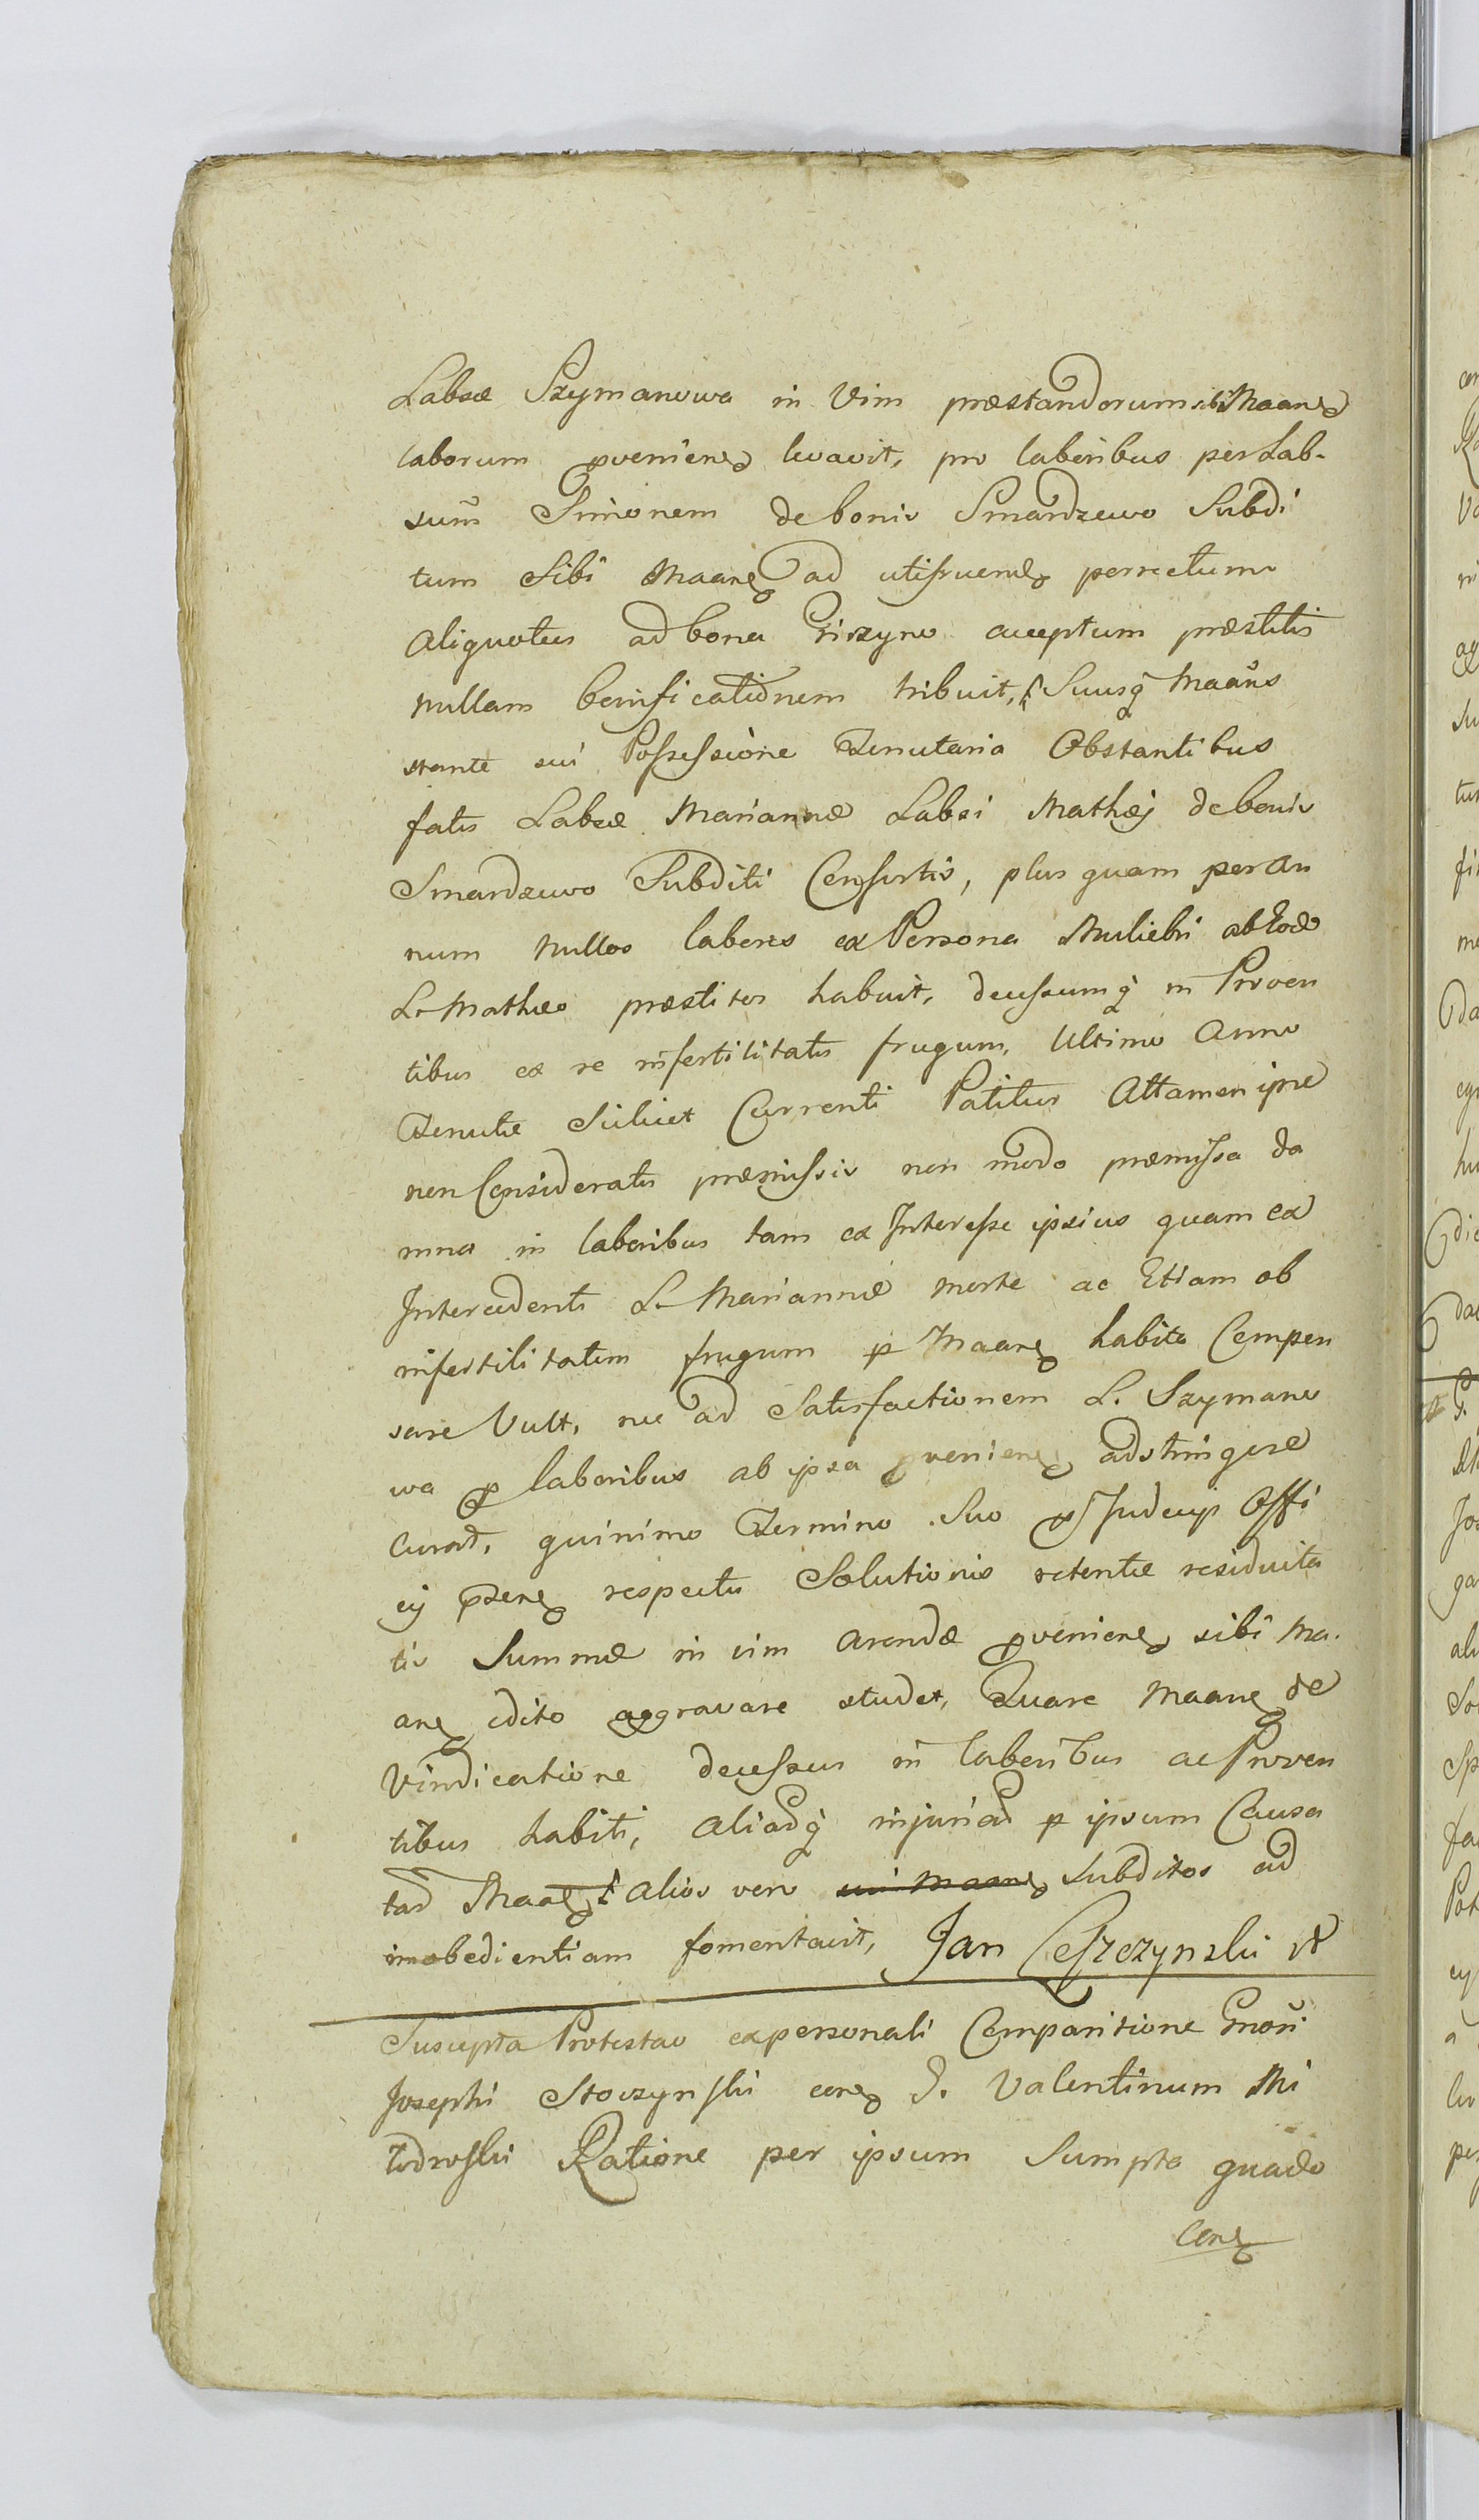 Labsæ Szymanowa in Vim præstandorum sibi Maane
laborum pveniens levavit, pro laboribus per Lab-
sum Simonem de bonis Smardzewo Subdi
tum Sibi Maane ad utifruend perrectum
Aliquoties ad bona acceptum præstitis
nullam bonificationem tribuit, Suusq Maans
stante sui Possessione Tenutaria Obstantibus
fatis Labsæ Mariannæ Labsi Mathæj de bonis
Smardzewo Subditi Consortis, plus quam per An
num nullos labores ex Persona Muliebri ab Eode
L. Matheo præstitos habuit, decessumq in Proven
tibus ex re infertilitatis frugum, Ultimo Anno
Tenutæ Scilicet Currenti Patitur Attamen ipse
non Consideratis præmissis non modo præmissa da
mna in laboribus tam ex Interesse ipsius quam ex
Intercedenti L. Mariannæ morte ac Etiam ob
infertilitatem frugum p Maane habita Compen
sare Vult, nec ad Satisfactionem L. Szymano
wa p laboribus ab ipsa pveniens adstringere
curat, quinimo Termino Suo Judicij Offi
cij respectu Solutionis retentæ residuita
tis Summæ in vim Arendæ pveniens sibi Ma-
ane edito aggravare studet, Quare Maane de
Vindicatione decessus in laboribus ac Proven
tibus habiti, Aliasq injurias p ipsum Causa
tas Maae Alios vero sui Maane Subditos ad
inobedientiam fomentavit, Jan Leszczynski
Suscepta Protestao ex personali Comparitione Gnosi
Josephi Stoczynski cone G. Valentinum Mi
Ratione per ipsum Sumpto quado
Cone